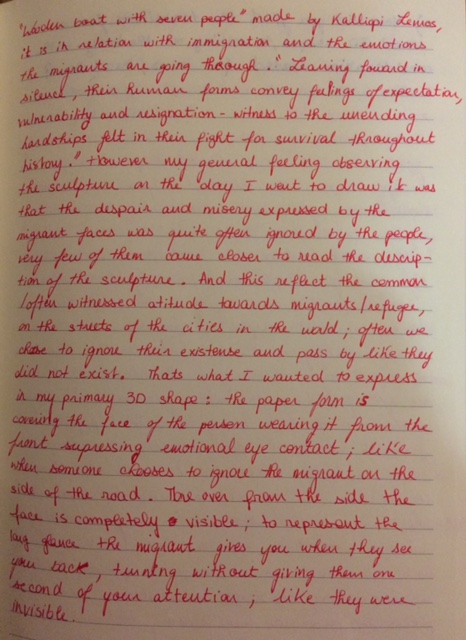 "Wooden boat with seven people" made by Kalliopi Lemos,
it is in relation with immigration and the emotions
the migrants are going through. "Leaning foward in
silence, their human forms convey feelings of expectation,
vulnerability and resignation - witness to the unending
hardships felt in their fight for survival throughout
history." However my general feeling observing
the sculpture on the day I went to draw it was
that the despair and misery expressed by the
migrant faces was quite often ignored by the people,
very few of them came closer to read the descrip-
tion of the sculpture. And this reflect the common
/often witnessed atitude towards migrants/refugee,
on the streets of the cities in the world; often we
chose to ignore their existense and pass by like they
did not exist. Thats what I wanted to express
in my primary 3D shape: the paper form is
covering the face of the person wearing it from the
front supressing emotional eye contact; like
when someone chooses to ignore the migrant on the
side of the road. More over from the side the
face is completely visible; to represent the
long glance the migrant gives you when they see
your back, turning without giving them one
second of your attention; like they were
invisible.